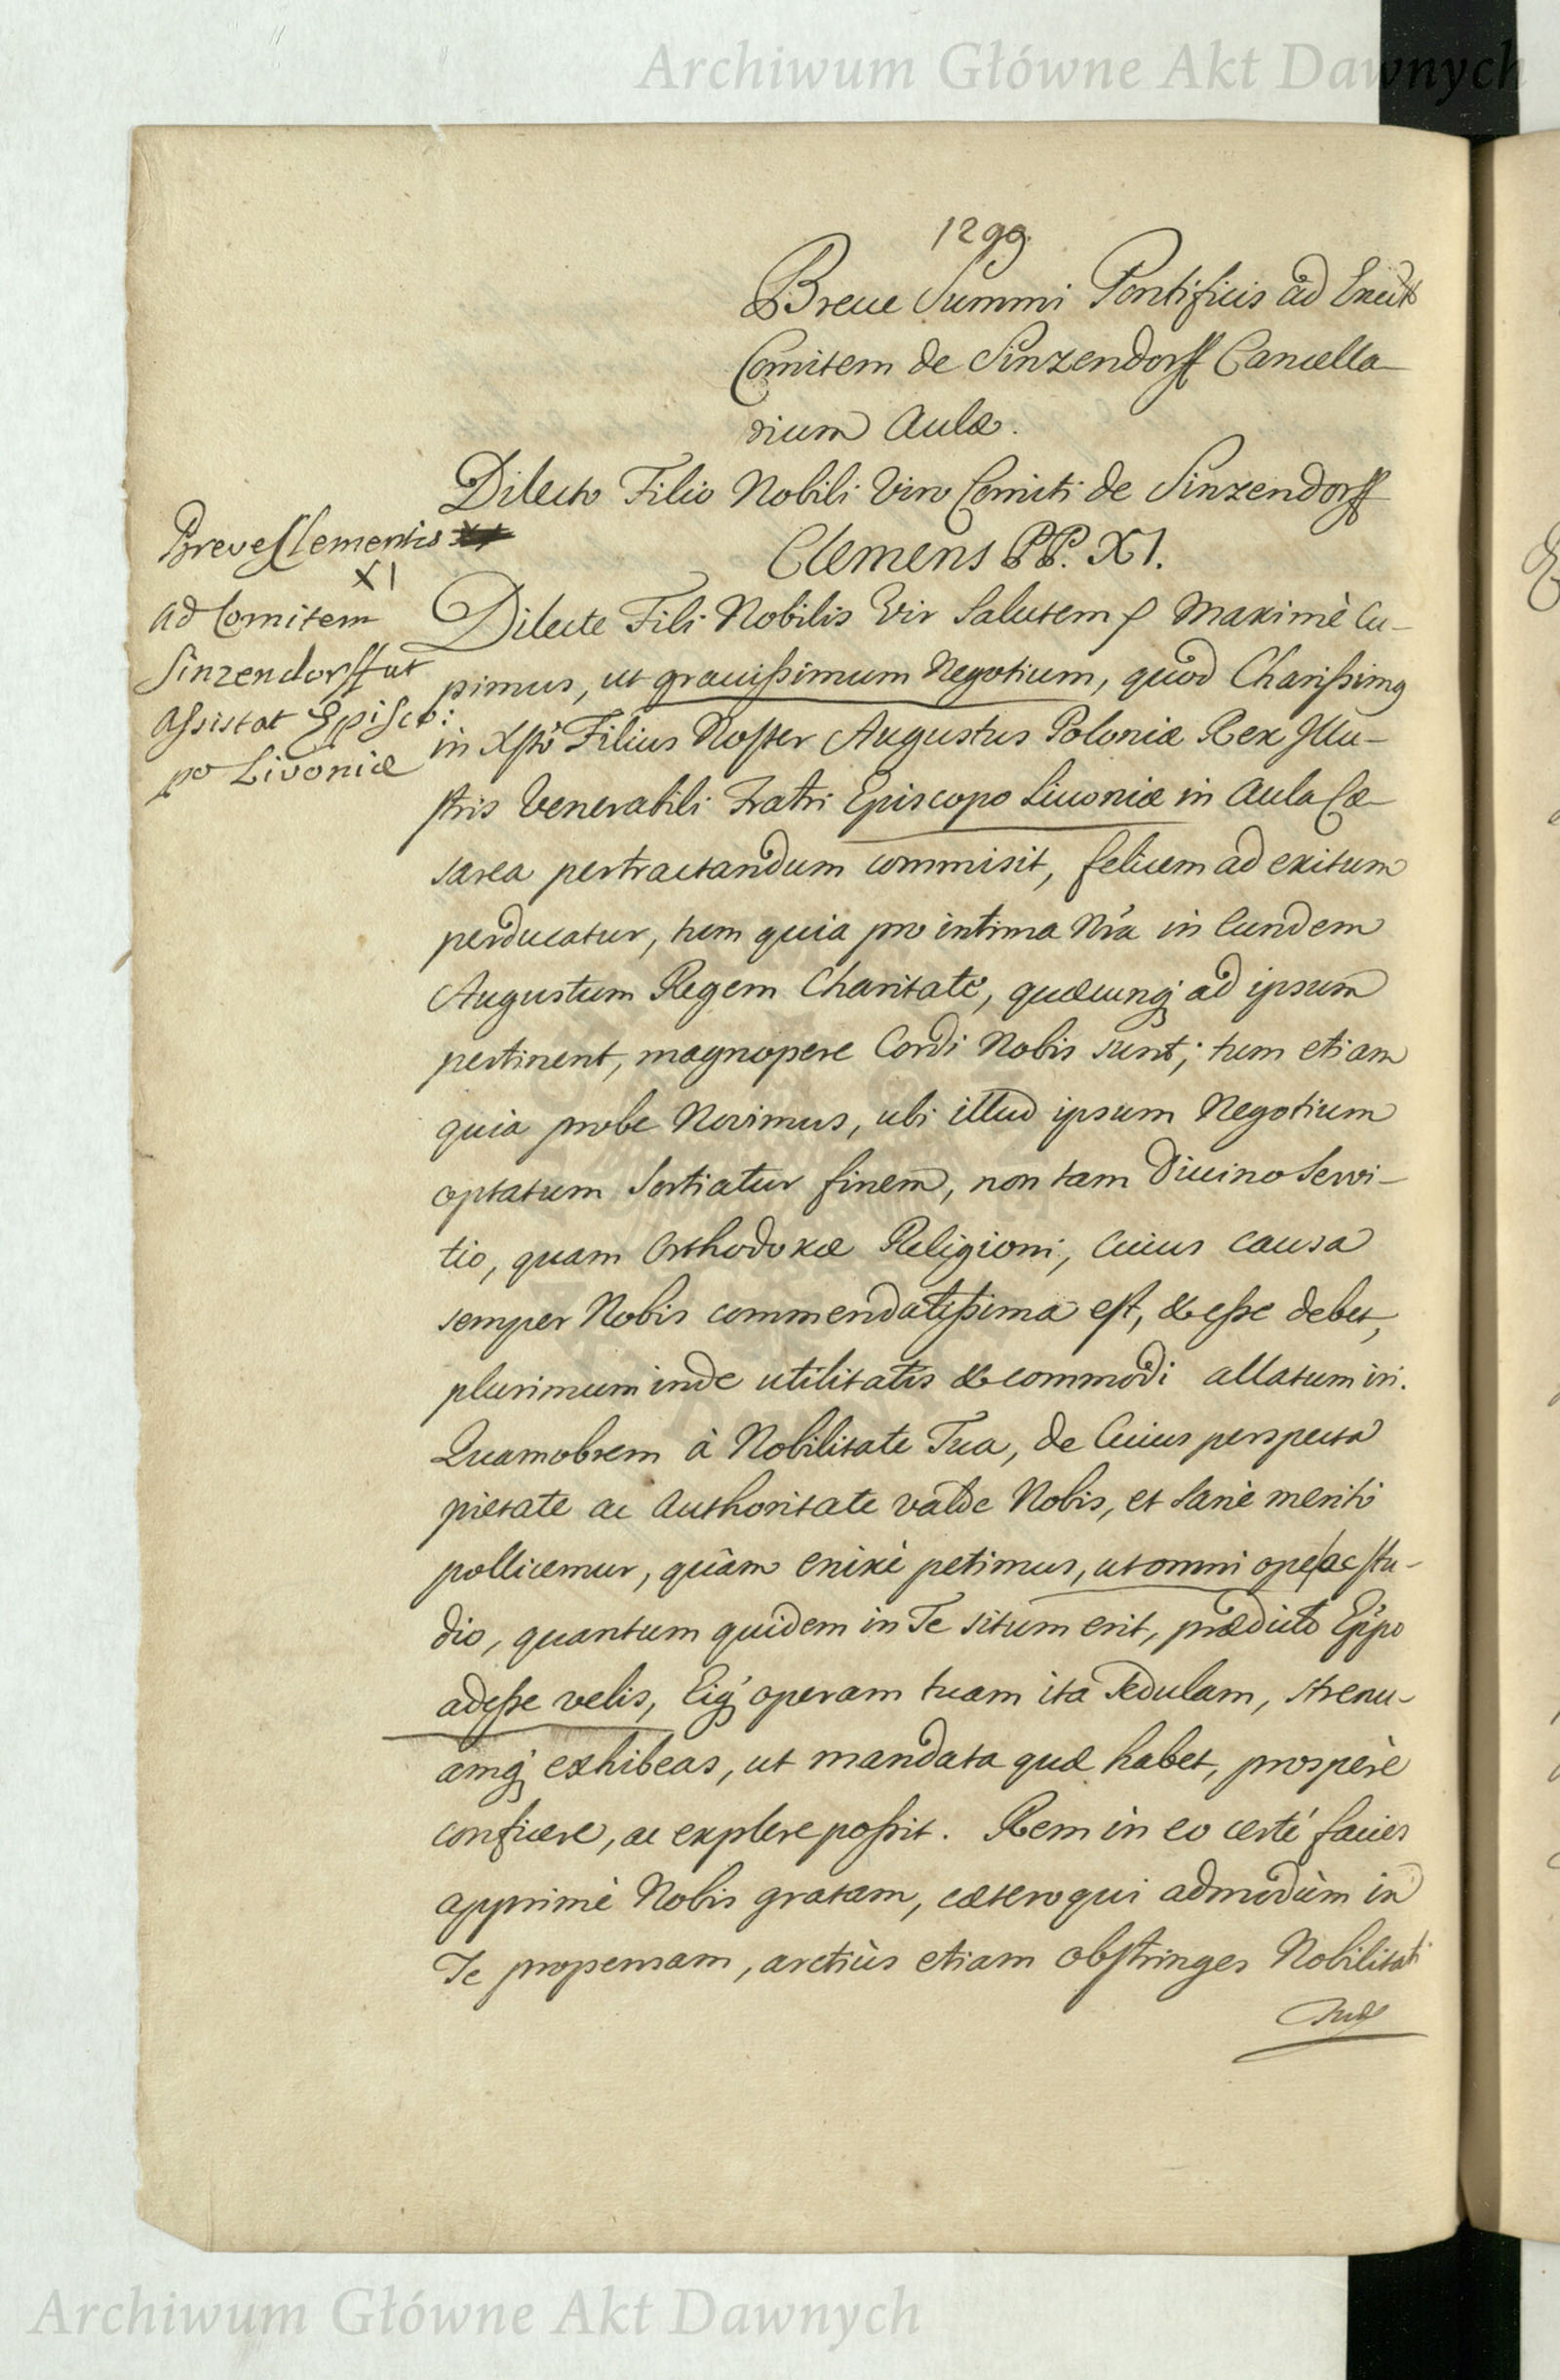 Archiwum Główne Akt Dawnych
1299.
Breue Summi Pontificis ad
Comitem de Sinzendorff Cancella-
rium Aulæ.
Dilecto Filio Nobili Viro Comiti de Sinzendorff
Clemens PP. XI.
Breve Clementis
XI
ad Comitem
Sinzendorff ut
assistat Episco:
po Livoniæ
Dilecte Fili Nobilis Vir Salutem & Maximè Cu-
pimus, ut grauissimum Negotium, quod Charissimus
in Xsto Filius Noster Augustus Poloniæ Rex Illu-
stris Venerabili Fratri Episcopo Liuoniæ in Aula Cæ-
sarea pertractandum commisit, felicem ad exitum
perducatur, tum quia pro intima Nra in Eundem
Augustum Regem Charitate, quæcunq; ad ipsum
pertinent, magnopere Cordi Nobis sunt; tum etiam
quia probe Novimus, ubi illud ipsum Negotium
optatum Sortiatur finem, non tam Diuino Servi-
tio, quam Orthodoxæ Religioni, Cuius causa
semper Nobis commendatissima est, & esse debet,
plurimum inde utilitatis & commodi allatum iri.
Quamobrem à Nobilitate Tua, de Cuius perspecta
pietate ac Authoritate valde Nobis, et Sanè meritò
pollicemur, quàm enixè petimus, ut omni ope ac stu-
dio, quantum quidem in Te situm erit, prædicto Eppo
adesse velis, Eiq; operam tuam ita Sedulam, strenu-
amq; exhibeas, ut mandata quæ habet, prospère
conficere, ac explere possit. Rem in eo certé facies
apprimè Nobis gratam, cæteroqui admodùm in
Te propensam, arctiùs etiam obstringes Nobilitati
Tuæ
Archiwum Główne Akt Dawnych